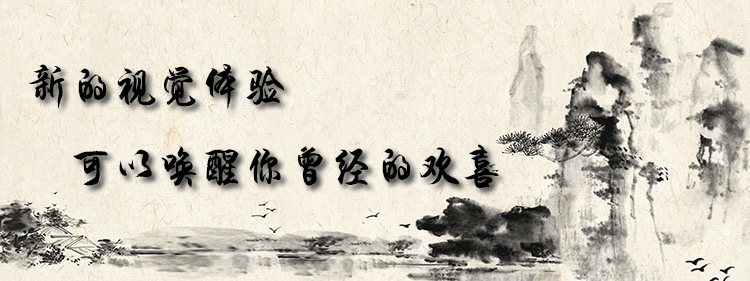 新的视觉体验
可以唤醒你曾经的欢喜